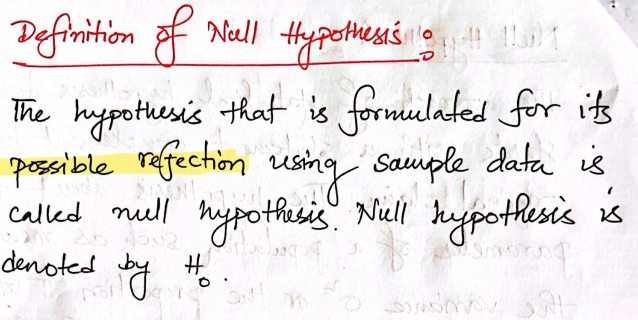 Definition of Null Hypothesis :
The hypothesis that is formulated for its
possible rejection using sample data is
called null hypothesis. Null hypothesis is
denoted by H₀.